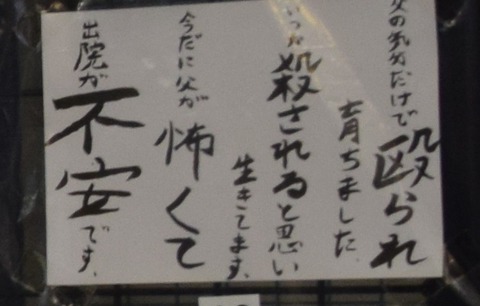 父の気分だけで殴られ
育ちました。
いつか殺されると思い
生きてます。
今だに父が怖くて
出院が不安です。